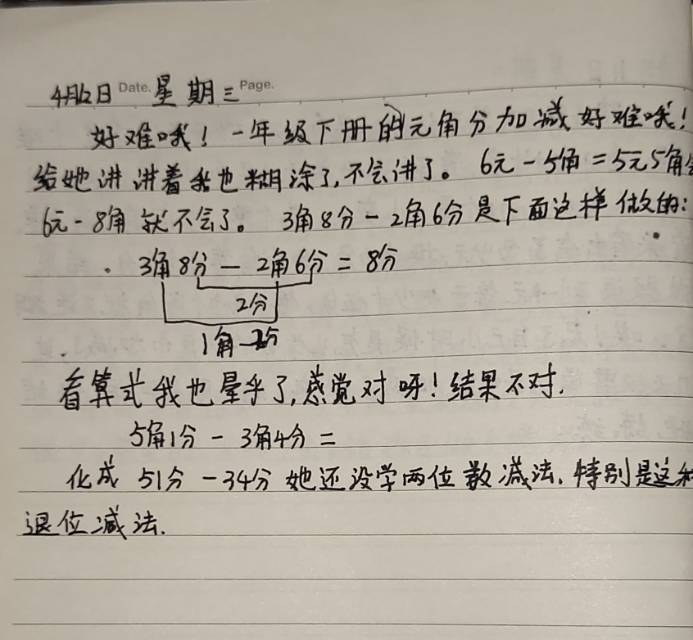 4月12日 Date. 星期三 Page.
好难哦！一年级下册的元角分加减好难哦！
给她讲讲着我也糊涂了,不会讲了。6元-5角=5元5角
6元-8角就不会了。3角8分-2角6分是下面这样做的:
3角8分-2角6分=8分
2分
1角-2分
看算式我也晕乎了,感觉对呀!结果不对.
5角1分-3角4分=
化成 51分-34分 她还没学两位数减法.特别是这种
退位减法.